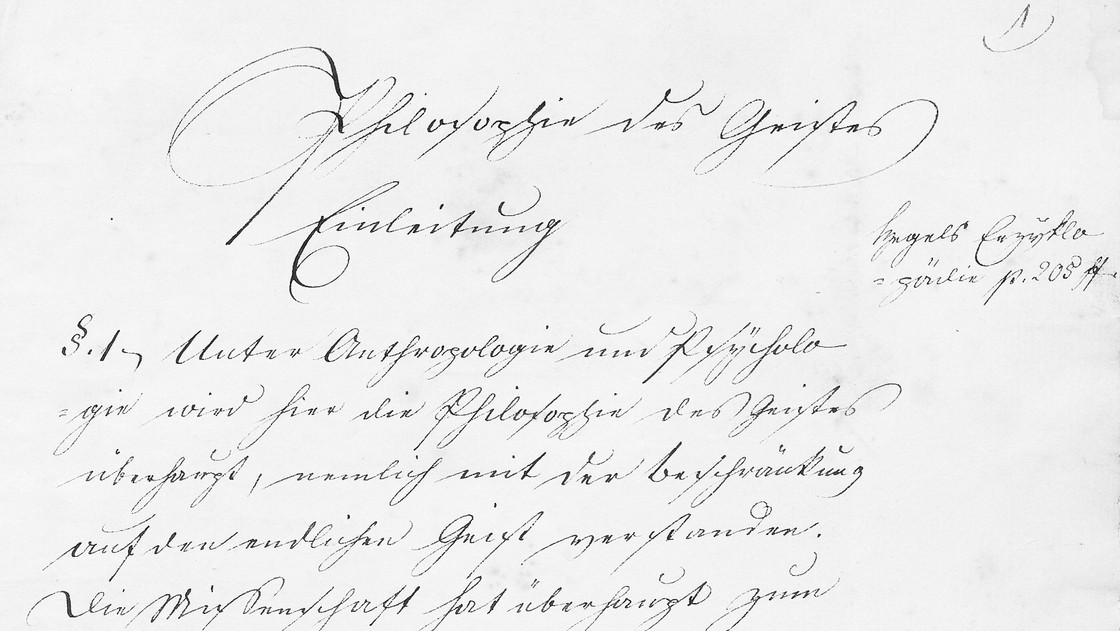 1
Philosophie des Geistes
Einleitung
Hegels Enzyklo
=pädie p. 205 ff.
§. 1. Unter Anthropologie und Psÿcholo
=gie wird hier die Philosophie des Geistes
überhaupt, nemlich mit der Beschränkung
auf den endlichen Geist verstanden.
Die Wissenschaft hat überhaupt zum